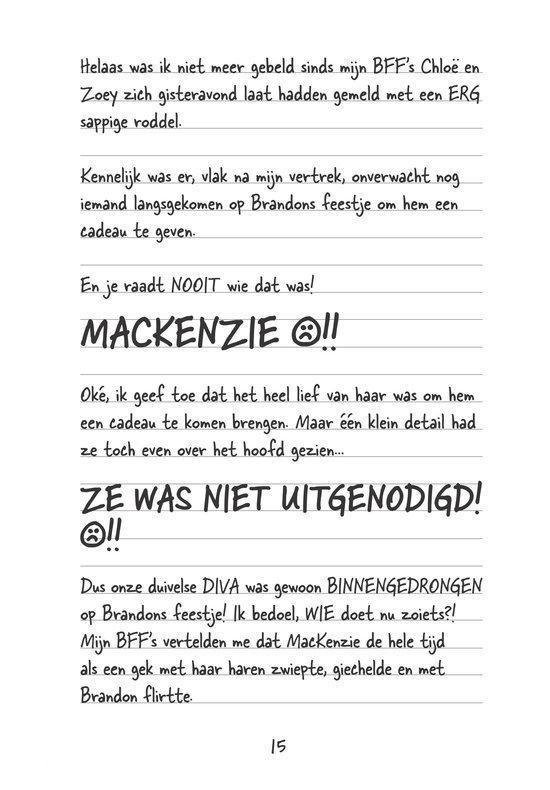 Helaas was ik niet meer gebeld sinds mijn BFF's Chloë en
Zoey zich gisteravond laat hadden gemeld met een ERG
sappige roddel.
Kennelijk was er, vlak na mijn vertrek, onverwacht nog
iemand langsgekomen op Brandons feestje om hem een
cadeau te geven.
En je raadt NOOIT wie dat was!
MACKENZIE ☹!!
Oké, ik geef toe dat het heel lief van haar was om hem
een cadeau te komen brengen. Maar één klein detail had
ze toch even over het hoofd gezien...
ZE WAS NIET UITGENODIGD!
☹!!
Dus onze duivelse DIVA was gewoon BINNENGEDRONGEN
op Brandons feestje! Ik bedoel, WIE doet nu zoiets?!
Mijn BFF's vertelden me dat MacKenzie de hele tijd
als een gek met haar haren zwiepte, giechelde en met
Brandon flirtte.
15